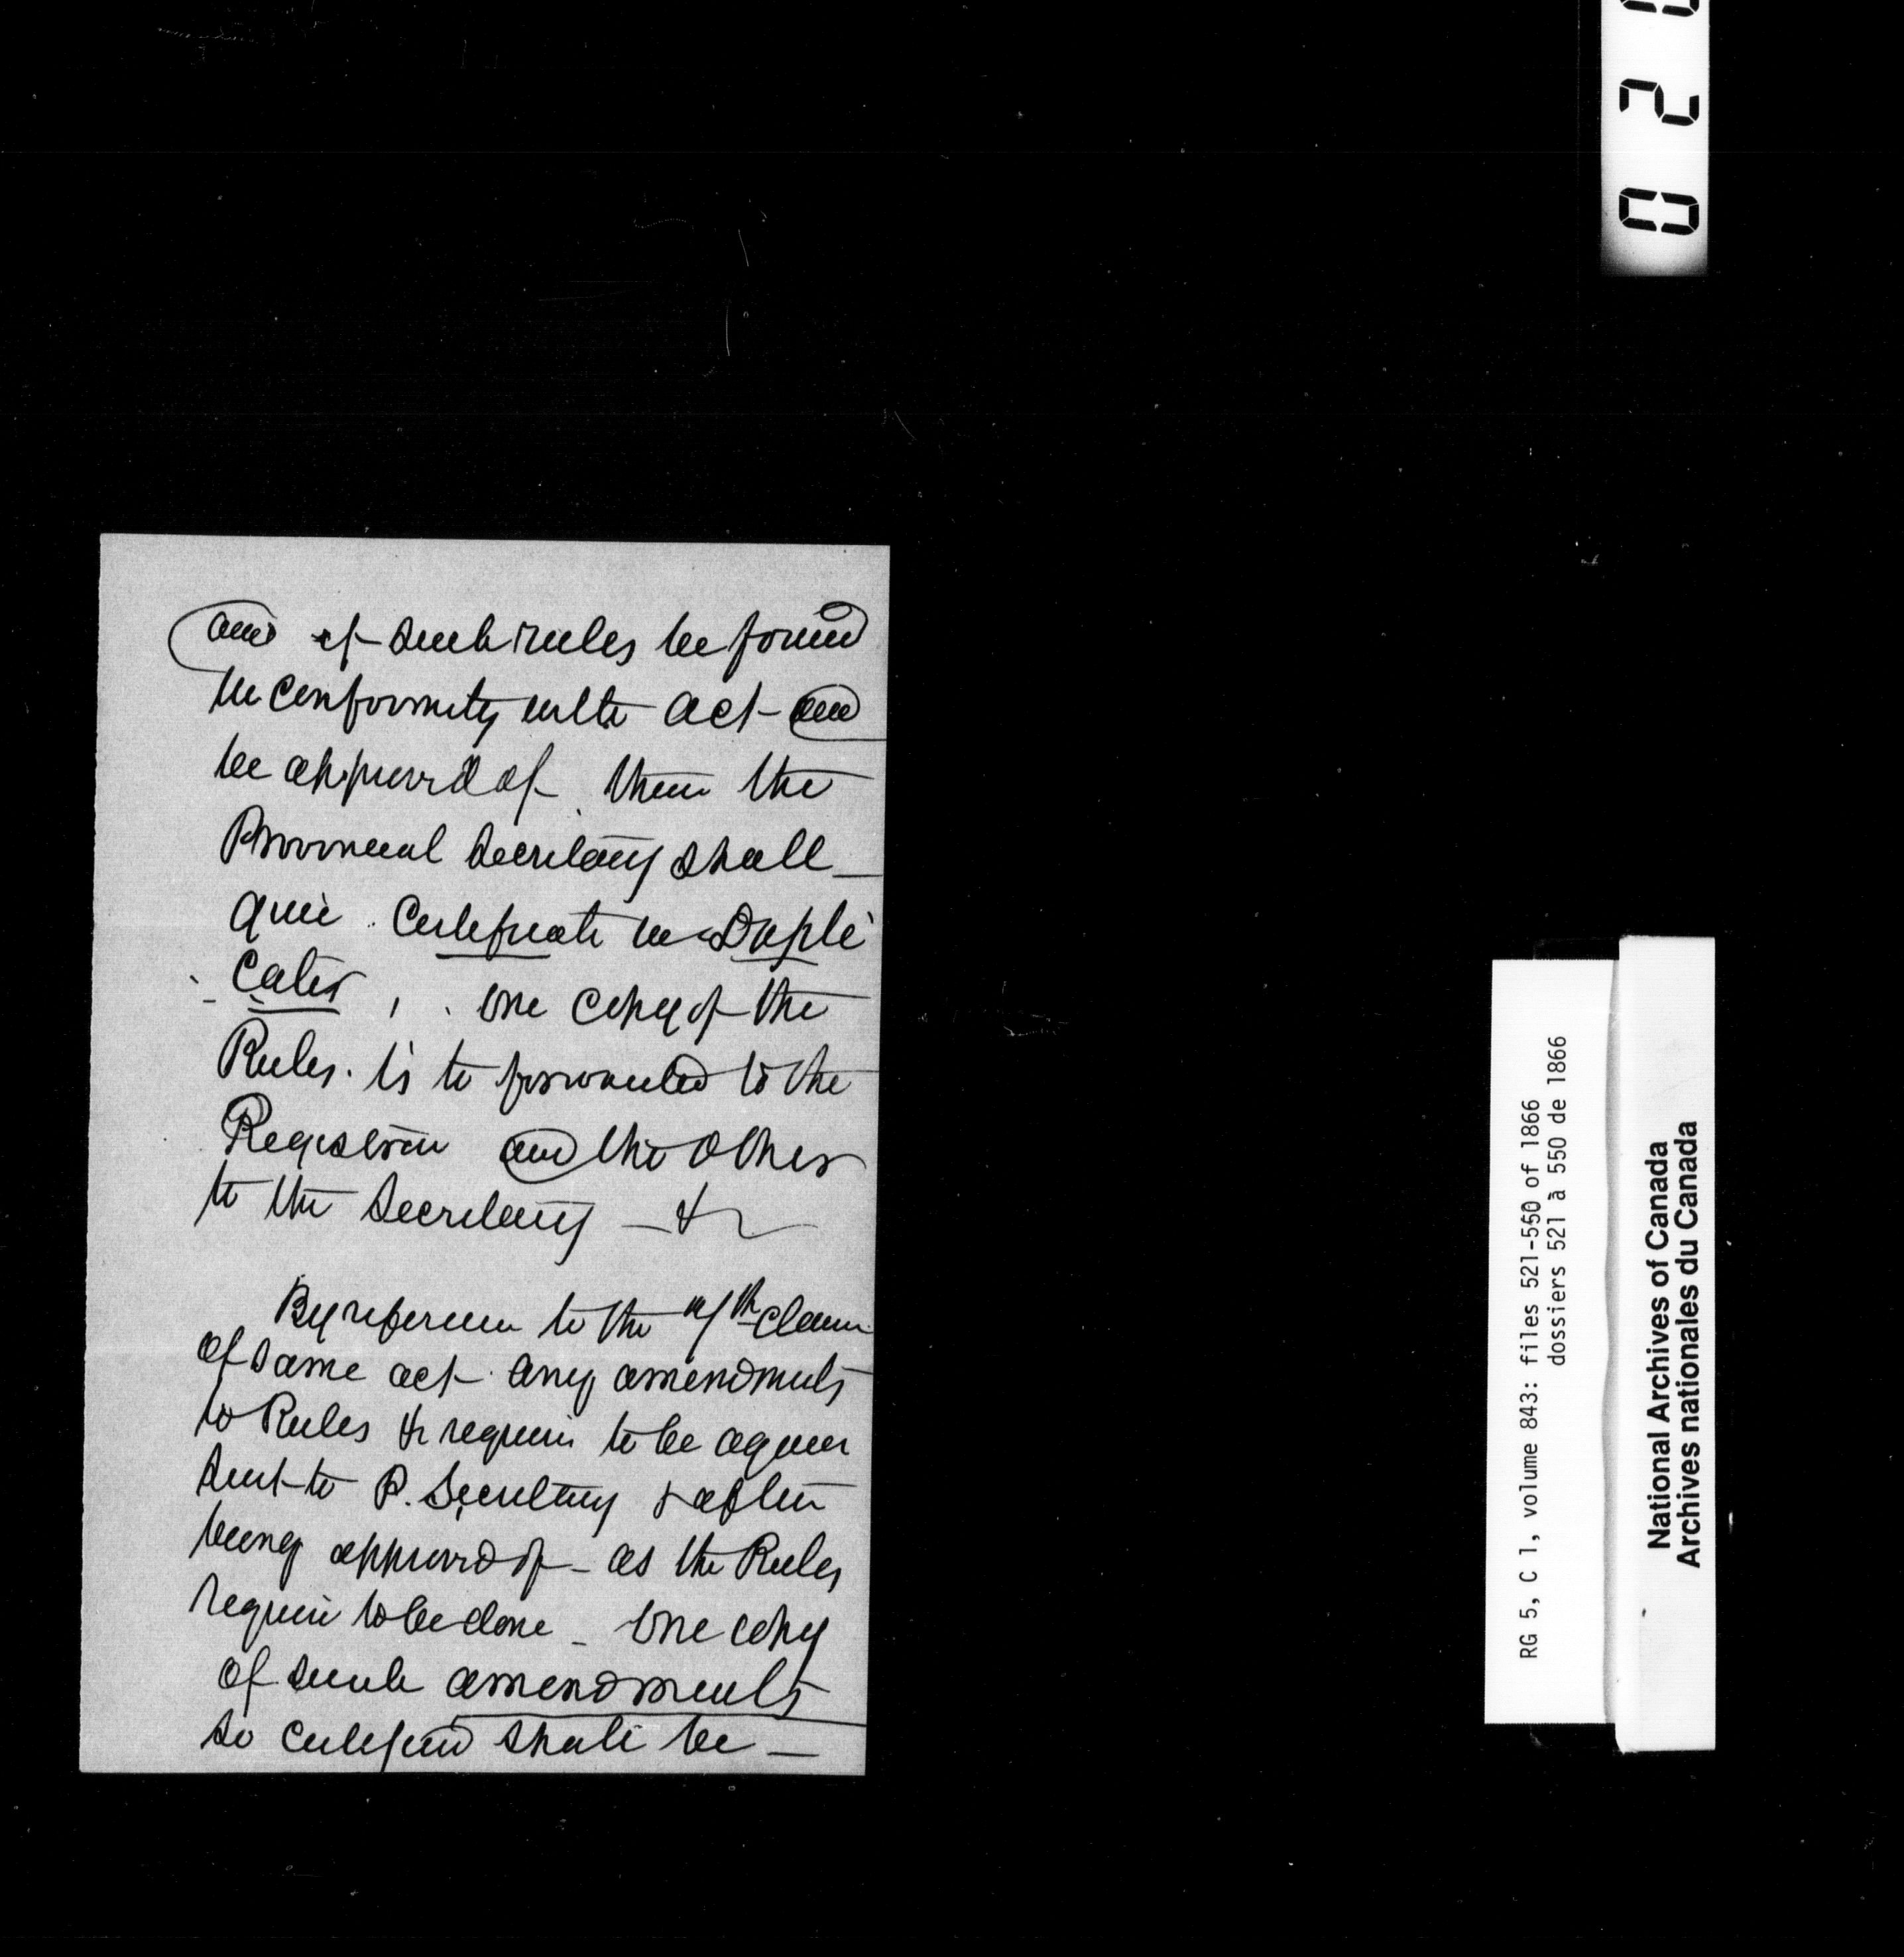 and if such rules be found
in conformity with act and
be approved of then the
Provincial Secretary shall
give Certificate in Dupli
cates, one copy of the
Rules. is to forwarded to the
Registrar and the other
to the Secretary — &c
By reference to the th clause
of same act any amendments
to Rules &c require to be again
sent to P. Secretary & after
being approved of — as the Rules
require to be done — one copy
of such amendments
so certified shall be —
RG 5, C 1, volume 843: files 521-550 of 1866
dossiers 521 à 550 de 1866
National Archives of Canada
Archives nationales du Canada
0 2